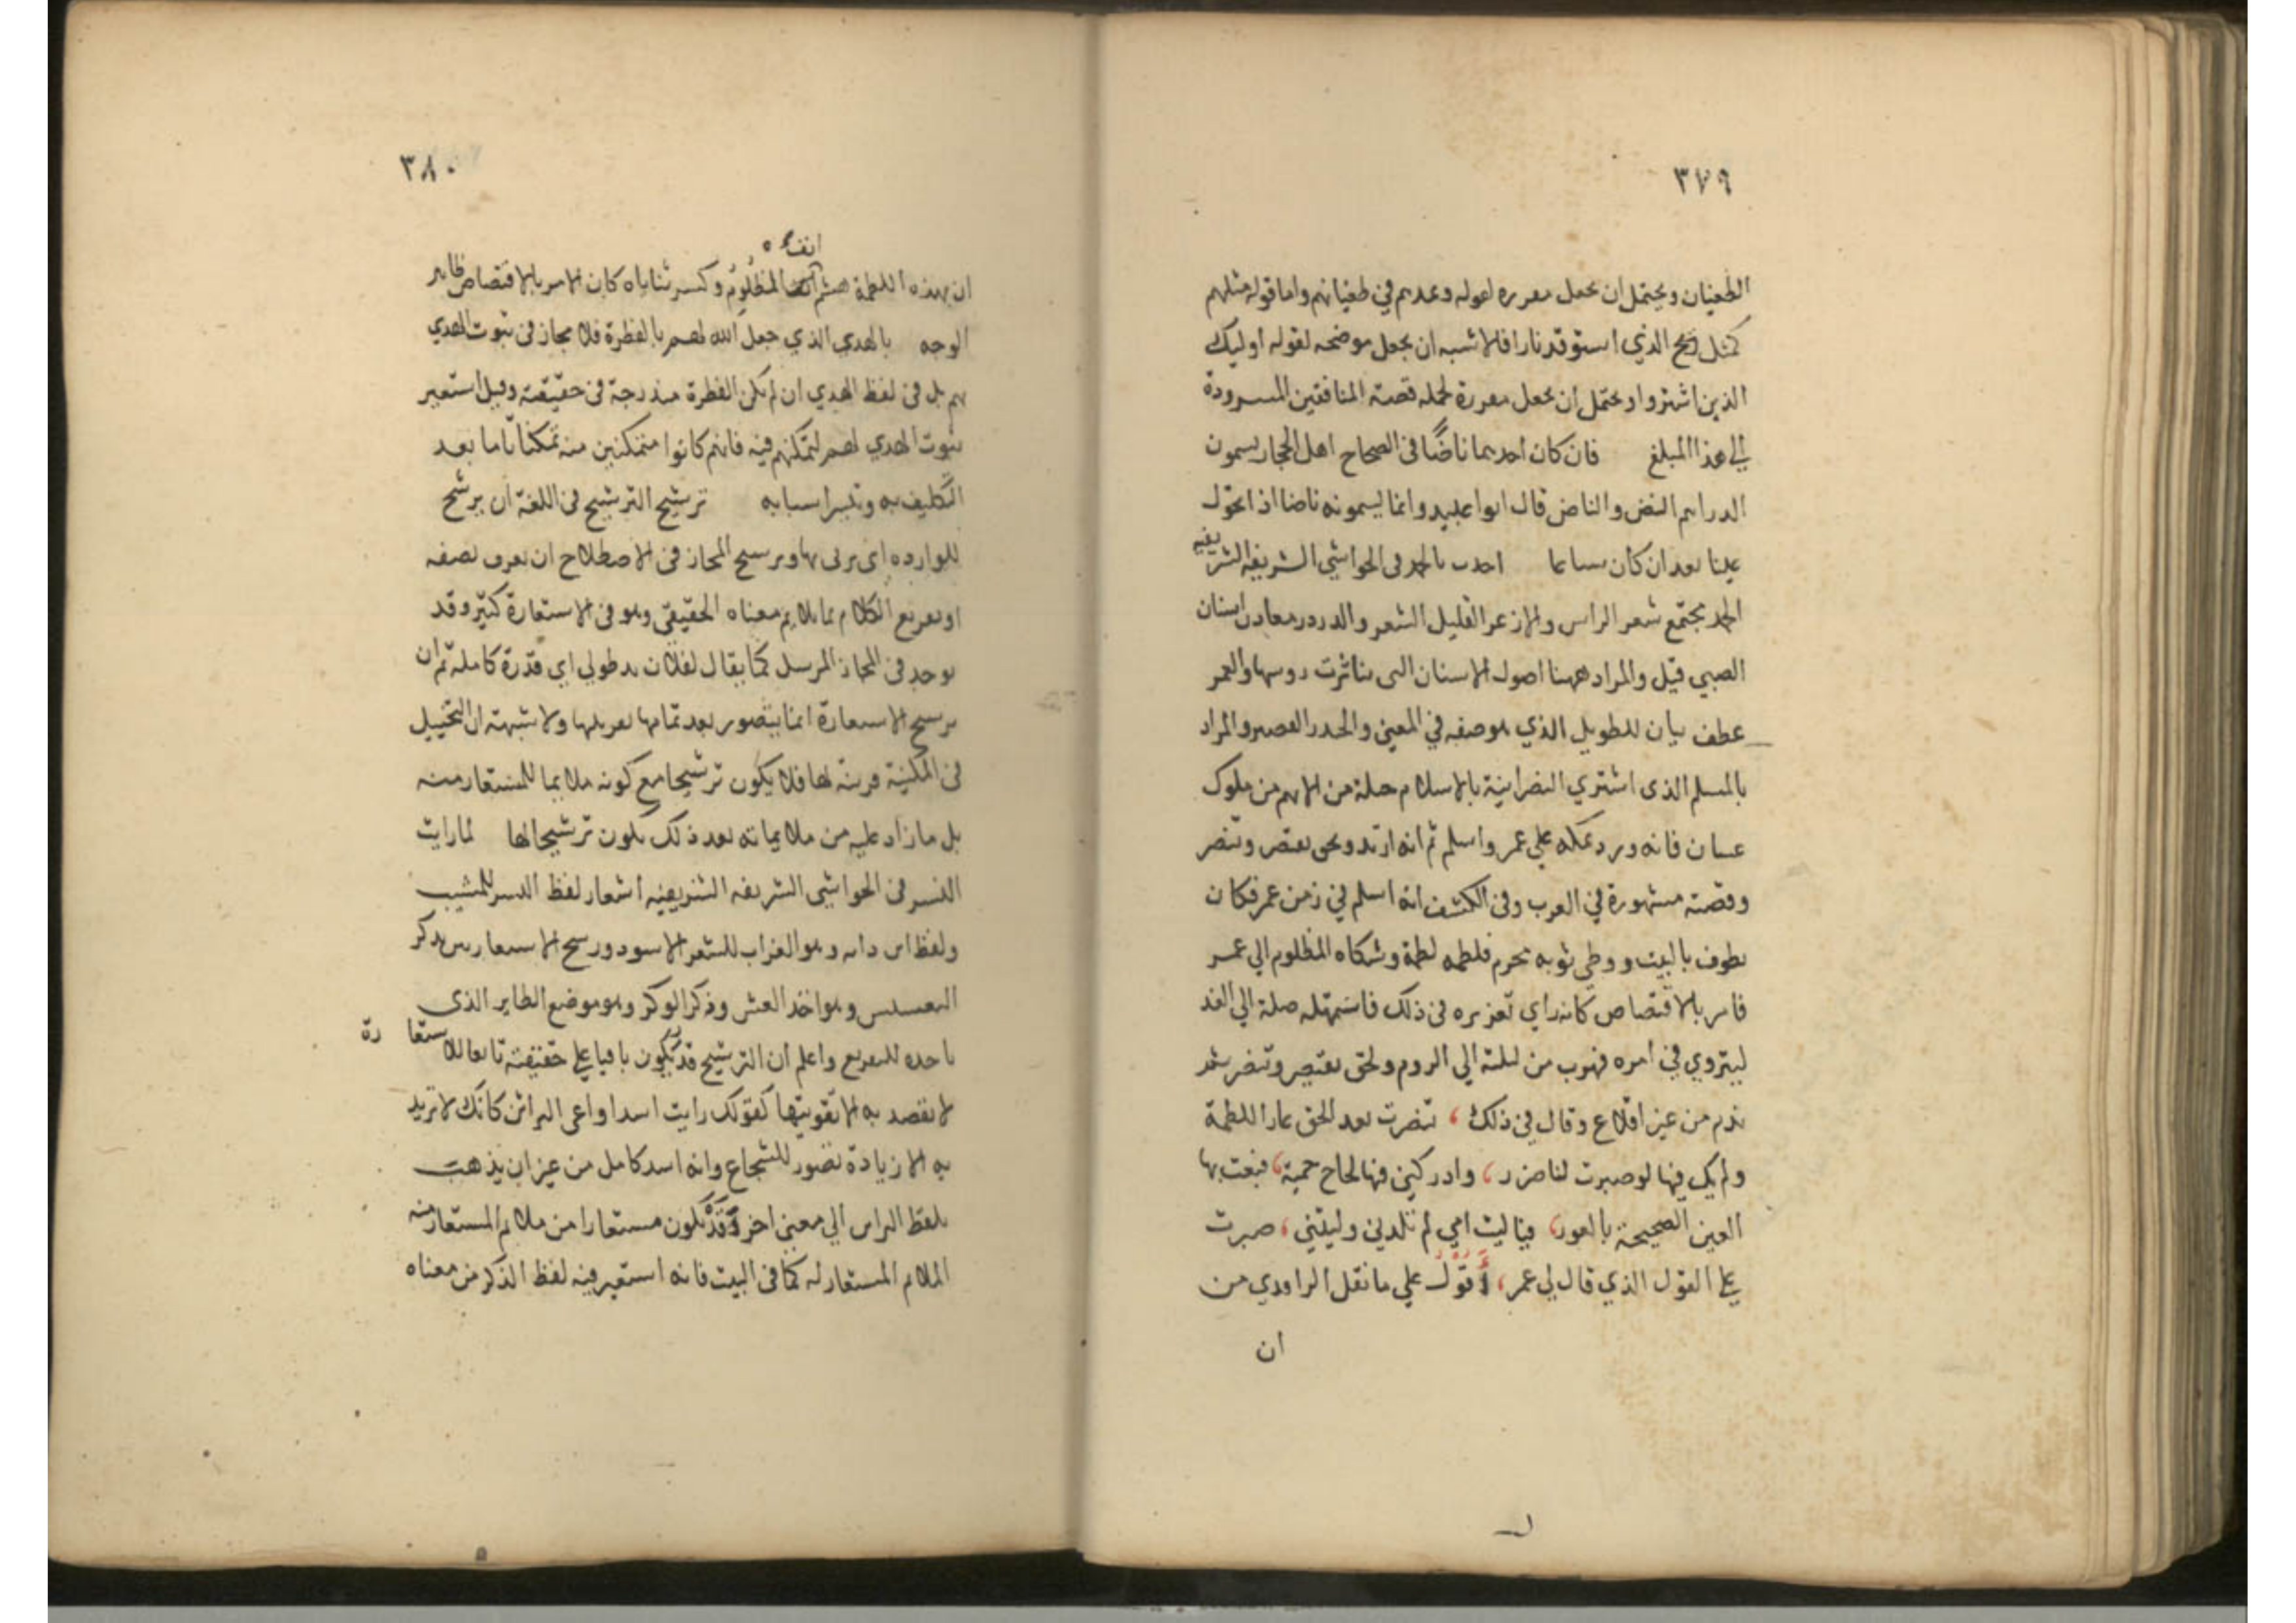 ٣٧٩
الطغيان ويحتمل ان يجعل مقررة لقوله ويمدهم في طغيانهم واما قوله مثلهم
كمثل الذي استوقد نارا فالاشبه ان يجعل موضحه لقوله اوليك
الذين اشتروا ويحتمل ان يجعل مقررة لجملة قصة المنافقين المسرودة
الي هذا المبلغ فان كان احدهما ناضًا في الصحاح اهل الحجاز يسمون
الدراهم النض والناض قال ابو عبيد وانما يسمونه ناضا اذا تحول
عينا بعد ان كان متاعا اخذت بالجمة في الحواشي الشريفة الشريفيه
الجمة مجتمع شعر الراس والازعر القليل الشعر والدردر مغارز اسنان
الصبي قيل والمراد ههنا اصول الاسنان التي تناثرت روسها والعمر
عطف بيان للطويل الذي هو صفه في المعني والجيدر القصير والمراد
بالمسلم الذي اشتري النصرانية بالاسلام جبلة من الايهم من ملوك
غسان فانه ورد مكه علي عمر واسلم ثم انه ارتد ولحق بقيصر وتنصر
وقصته مشهورة في العرب وفي الكشف انه اسلم في زمن عمر فكان
يطوف بالبيت ووطي ثوبه محرم فلطمه لطمة وشكاه المظلوم الي عمر
فامر بالاقتصاص كانه راي تعزيره في ذلك فاستمهله جبلة الي الغد
ليتروي في امره فهرب من ليلته الي الروم ولحق بقيصر وتنصر ثم
ندم من غير اقلاع وقال في ذلك ، تنصرت بعد الحق عارا للطمة
ولم يك فيها لو صبرت لها ضرر ، وادركني فيها لجاج حمية ، فبعت بها
العين الصحيحة بالعور ، فياليت امي لم تلدني وليتني ، صبرت
علي القول الذي قال لي عمر ، أقول علي ما نقل الراوي من
ان
٣٨٠
انفه
ان بهذه اللطمة هشم المظلوم وكسر ثناياه كان الامر بالاقتصاص ظاهر
الوجه بالهدي الذي جعل الله لهم بالفطرة فلا مجاز في ثبوت الهدي
لهم بل في لفظ الهدي ان لم يكن الفطرة مندرجة في حقيقته وقيل استعير
ثبوت الهدي لهم لتمكنهم فيه فانهم كانوا متمكنين منه تمكنا تاما بعد
التكليف به وتيسر اسبابه ترشيح الترشيح في اللغة ان يرشح
للوزارة اي يربي لها وترشيح المجاز في الاصطلاح ان يعرف بصفه
او تفريع الكلام بما يلايم معناه الحقيقي وهو في الاستعارة كثير وقد
يوجد في المجاز المرسل كما يقال لفلان يد طولي اي قدرة كاملة ثم ان
ترشيح الاستعارة انما يتصور بعد تمامها بقرينتها ولا شبهة ان التخييل
في المكنية قرينة لها فلا يكون ترشيحا مع كونه ملايما للمستعار منه
بل ما زاد عليه من ملايماته بعد ذلك يكون ترشيحا لها لما رايت
النسر في الحواشي الشريفه الشريفيه استعار لفظ النسر للمشيب
ولفظ ابن داية وهو الغراب للشعر الاسود ورشح الاستعارتين بذكر
التعشيش وهو اخذ العش وذكر الوكر وهو موضع الطاير الذي
ياخذه للتفريع واعلم ان الترشيح قد يكون باقيا علي حقيقته تابعا للاستعارة
لا يقصد به الا تقويتها كقولك رايت اسدا وافي البراثن كانك لا تريد
به الا زيادة تصور للشجاع وانه اسد كامل من غير ان يذهب
بلفظ البراثن الي معني اخر وقد يكون مستعارا من ملايم المستعار منه
الملايم المستعار له كما في البيت فانه استعير فيه لفظ الذكر من معناه